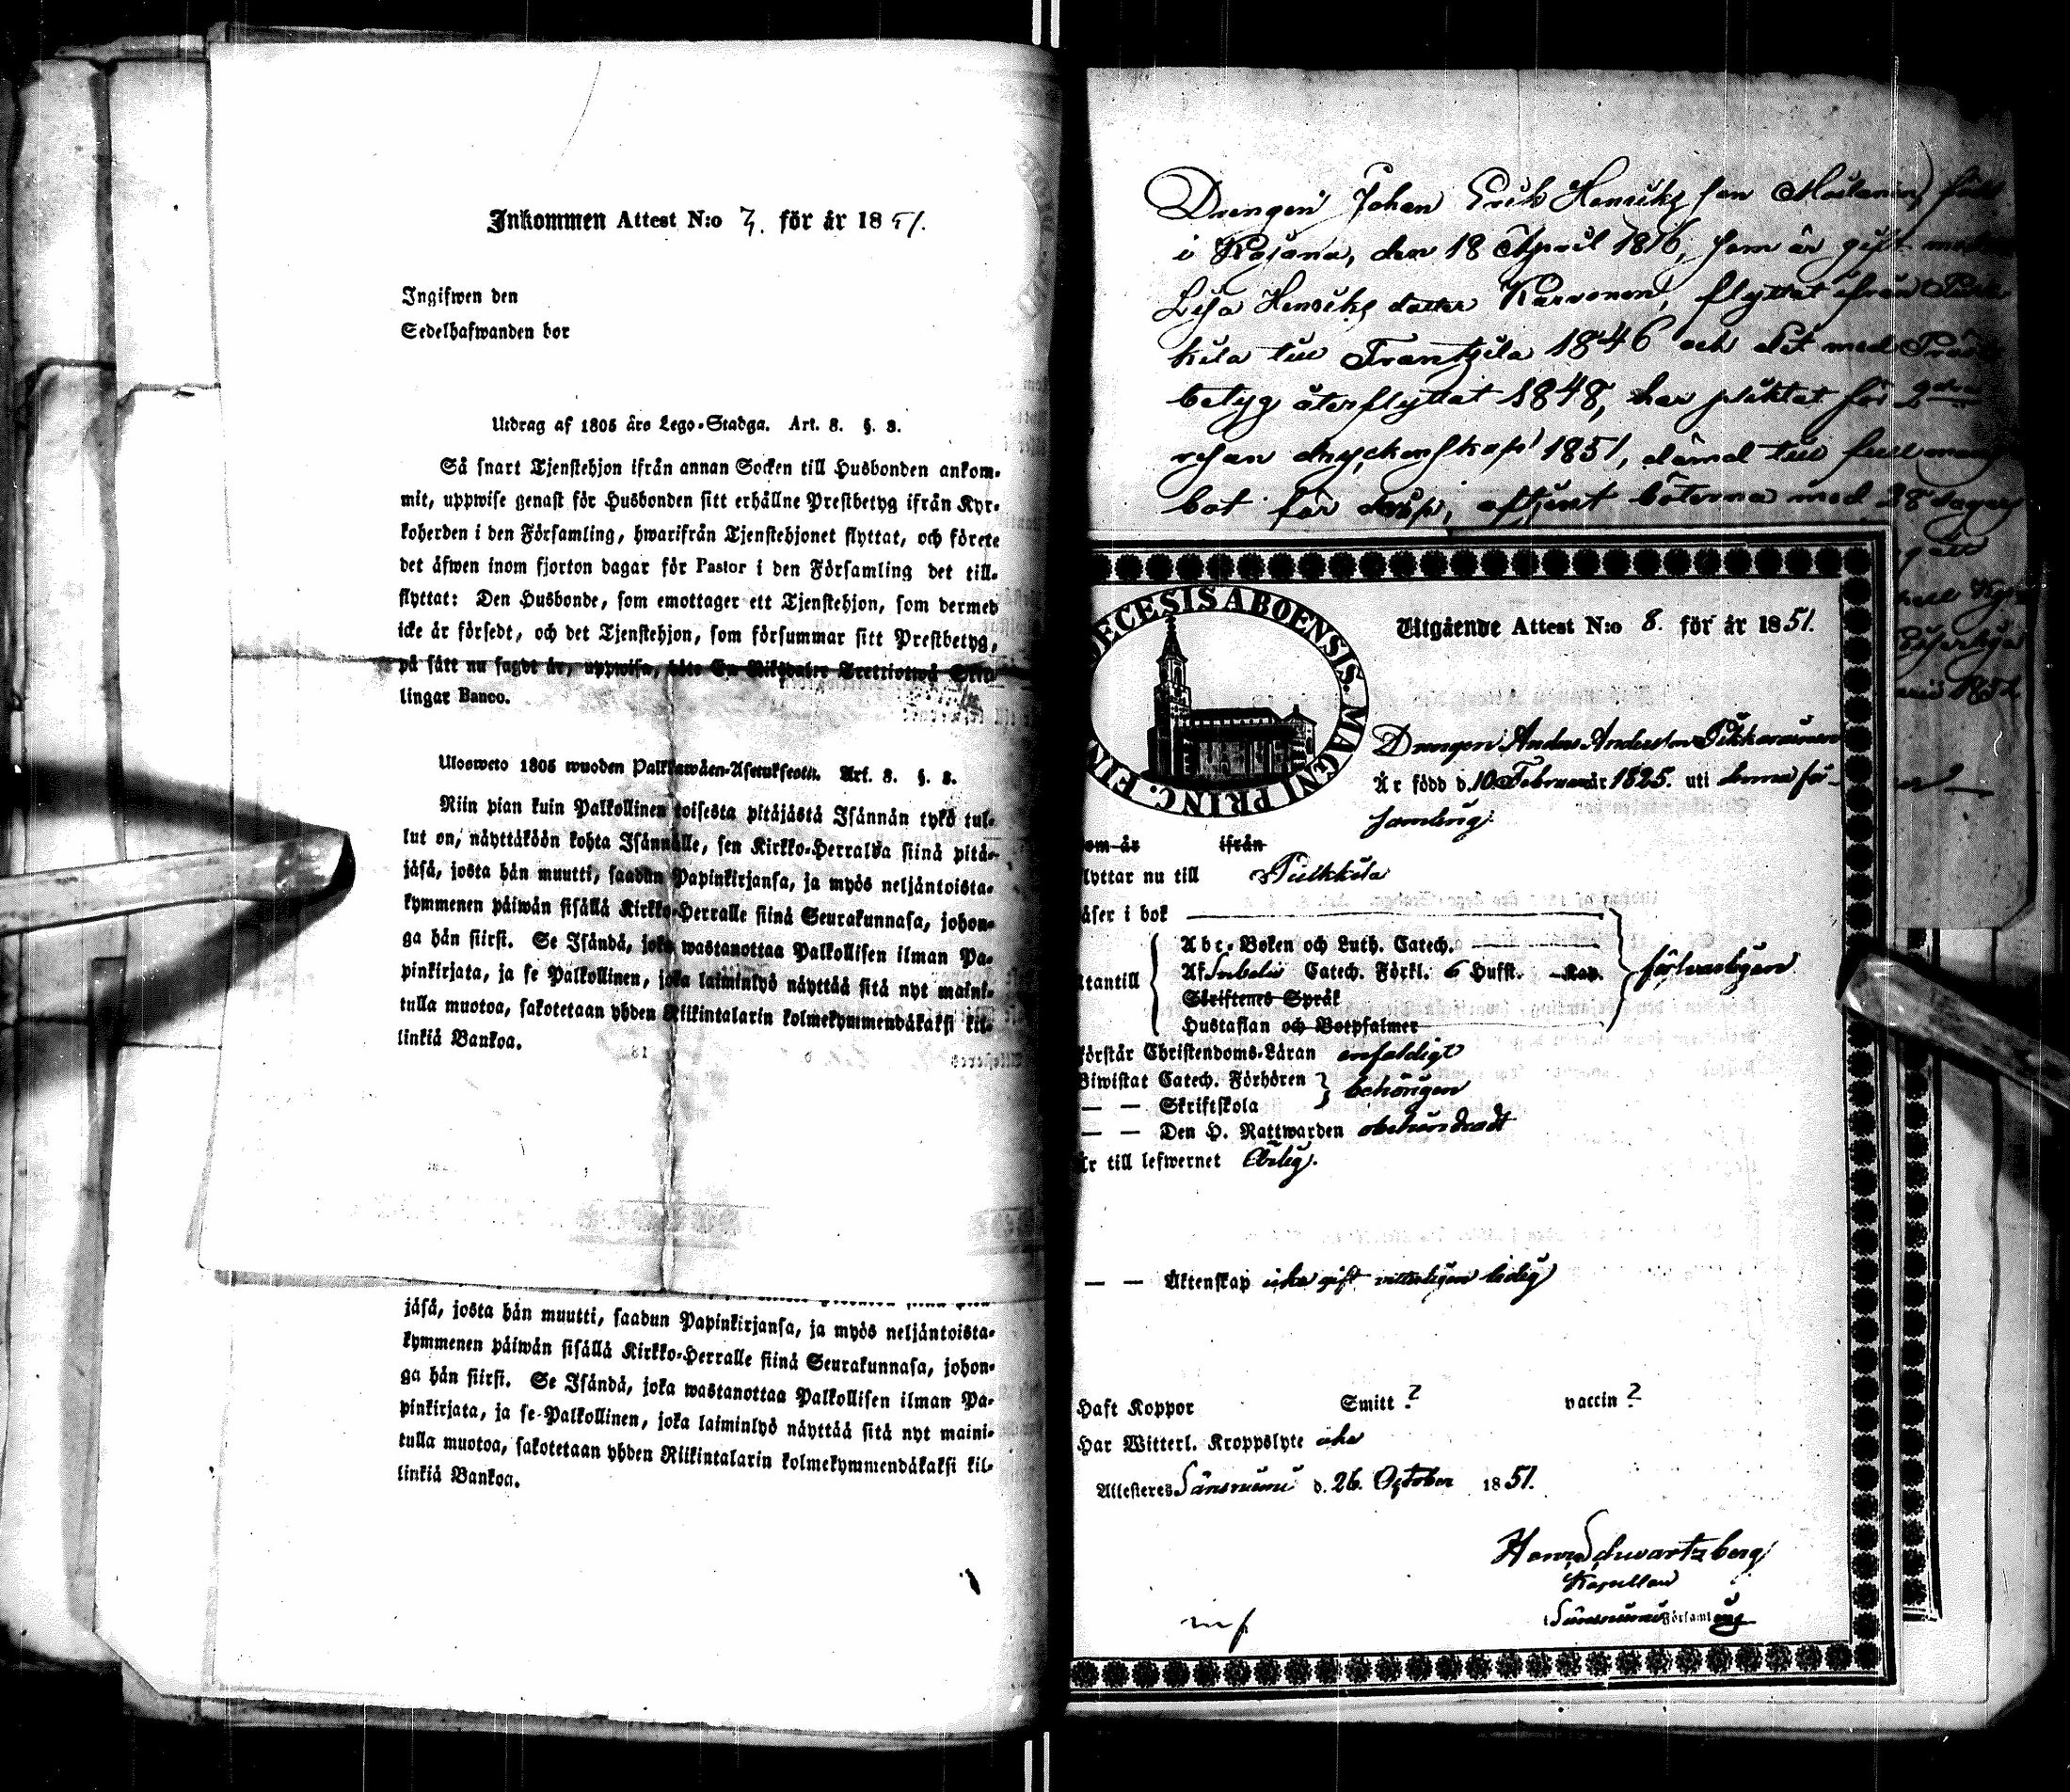 Inkommen Attest N:o 7. för år 1851.
Ingifwen den
Sedelhafwanden bor
Utdrag af 1805 års Lego-Stadga. Art. 8. §. 3.
Så snart Tjenstehjon ifrån annan Socken till Husbonden ankom-
mit, uppwise genast för Husbonden sitt erhållne Prestbetyg ifrån Kyr-
koherden i den Församling, hwarifrån Tjenstehjonet flyttat, och förete
det äfwen inom fjorton dagar för Pastor i den Församling det till-
flyttat: Den Husbonde, som emottager ett Tjenstehjon, som dermed
icke är försedt, och det Tjenstehjon, som försummar sitt Prestbetyg,
på sätt nu sagdt är, uppwisa, böte En Riksdaler Trettiotwå Skil-
lingar Banco.
Ulosweto 1805 wuoden Palkkawäen-Asetuksesta. Art. 8. §. 3.
Niin pian kuin Palkollinen toisesta pitäjästä Isännän tykö tul-
lut on, näyttäköön kohta Isännälle, sen Kirkko-Herralda siinä pitä-
jäsä, josta hän muutti, saadun Papinkirjansa, ja myös neljäntoista-
kymmenen päiwän sisällä Kirkko-Herralle siinä Seurakunnasa, johon-
ga hän siirsi. Se Isändä, joka wastanottaa Palkollisen ilman Pa-
pinkirjata, ja se Palkollinen, joka laiminlyö näyttää sitä nyt maini-
tulla muotoa, sakotetaan yhden Riikintalarin kolmekymmendäkaksi kil-
linkiä Bankoa.
jäsä, josta hän muutti, saadun Papinkirjansa, ja myös neljäntoista-
kymmenen päiwän sisällä Kirkko-Herralle siinä Seurakunnasa, johon-
ga hän siirsi. Se Isändä, joka wastanottaa Palkollisen ilman Pa-
pinkirjata, ja se Palkollinen, joka laiminlyö näyttää sitä nyt maini-
tulla muotoa, sakotetaan yhden Riikintalarin kolmekymmendäkaksi kil-
linkiä Bankoa.
Drengen Johan Erik Henriks son Moilanen, född
i Kajana, den 18 April 1816, som är gift med
Lisa Henriks dotter Karvonen, flyttat ifrån
kila till Frantzila 1846 och dit med Präst
betyg återflyttat 1848, har pliktat för 2dra
resan dryckenskap 1851, dömd till full mans
bot för dråp, aftjent böterna med 28 dagars
1852
DIECESIS ABOENSIS. MAGNI PRINC. FIN
Utgående Attest N:o 8. för år 1851.
Drengen Anders Andersson Pikkarainen
Är född d. 10 Februari år 1825. uti denna för-
samling.
om är ifrån
lyttar nu till Pulkkila
äser i bok
Abc-Boken och Luth. Catech.
tantill Af Svebelii Catech. Förkl. 6 Hufst. Kap. försvarligen
Skriftenes Språk
Hustaflan och Botpsalmer
örstår Christendoms-Läran enfaldigt
Biwistat Catech. Förhören behörigen
— — Skriftskola
— — Den H. Nattwarden obehindradt
är till lefwernet Ärlig.
— — Äktenskap icke gift vitterligen ledig
Haft Koppor Smitt ? vaccin ?
Har Witterl. Kroppslyte icke
Attesteres Säresniemi d. 26. October 1851.
Henr. Schwartzberg
Kapellan
i Säresniemi Församling